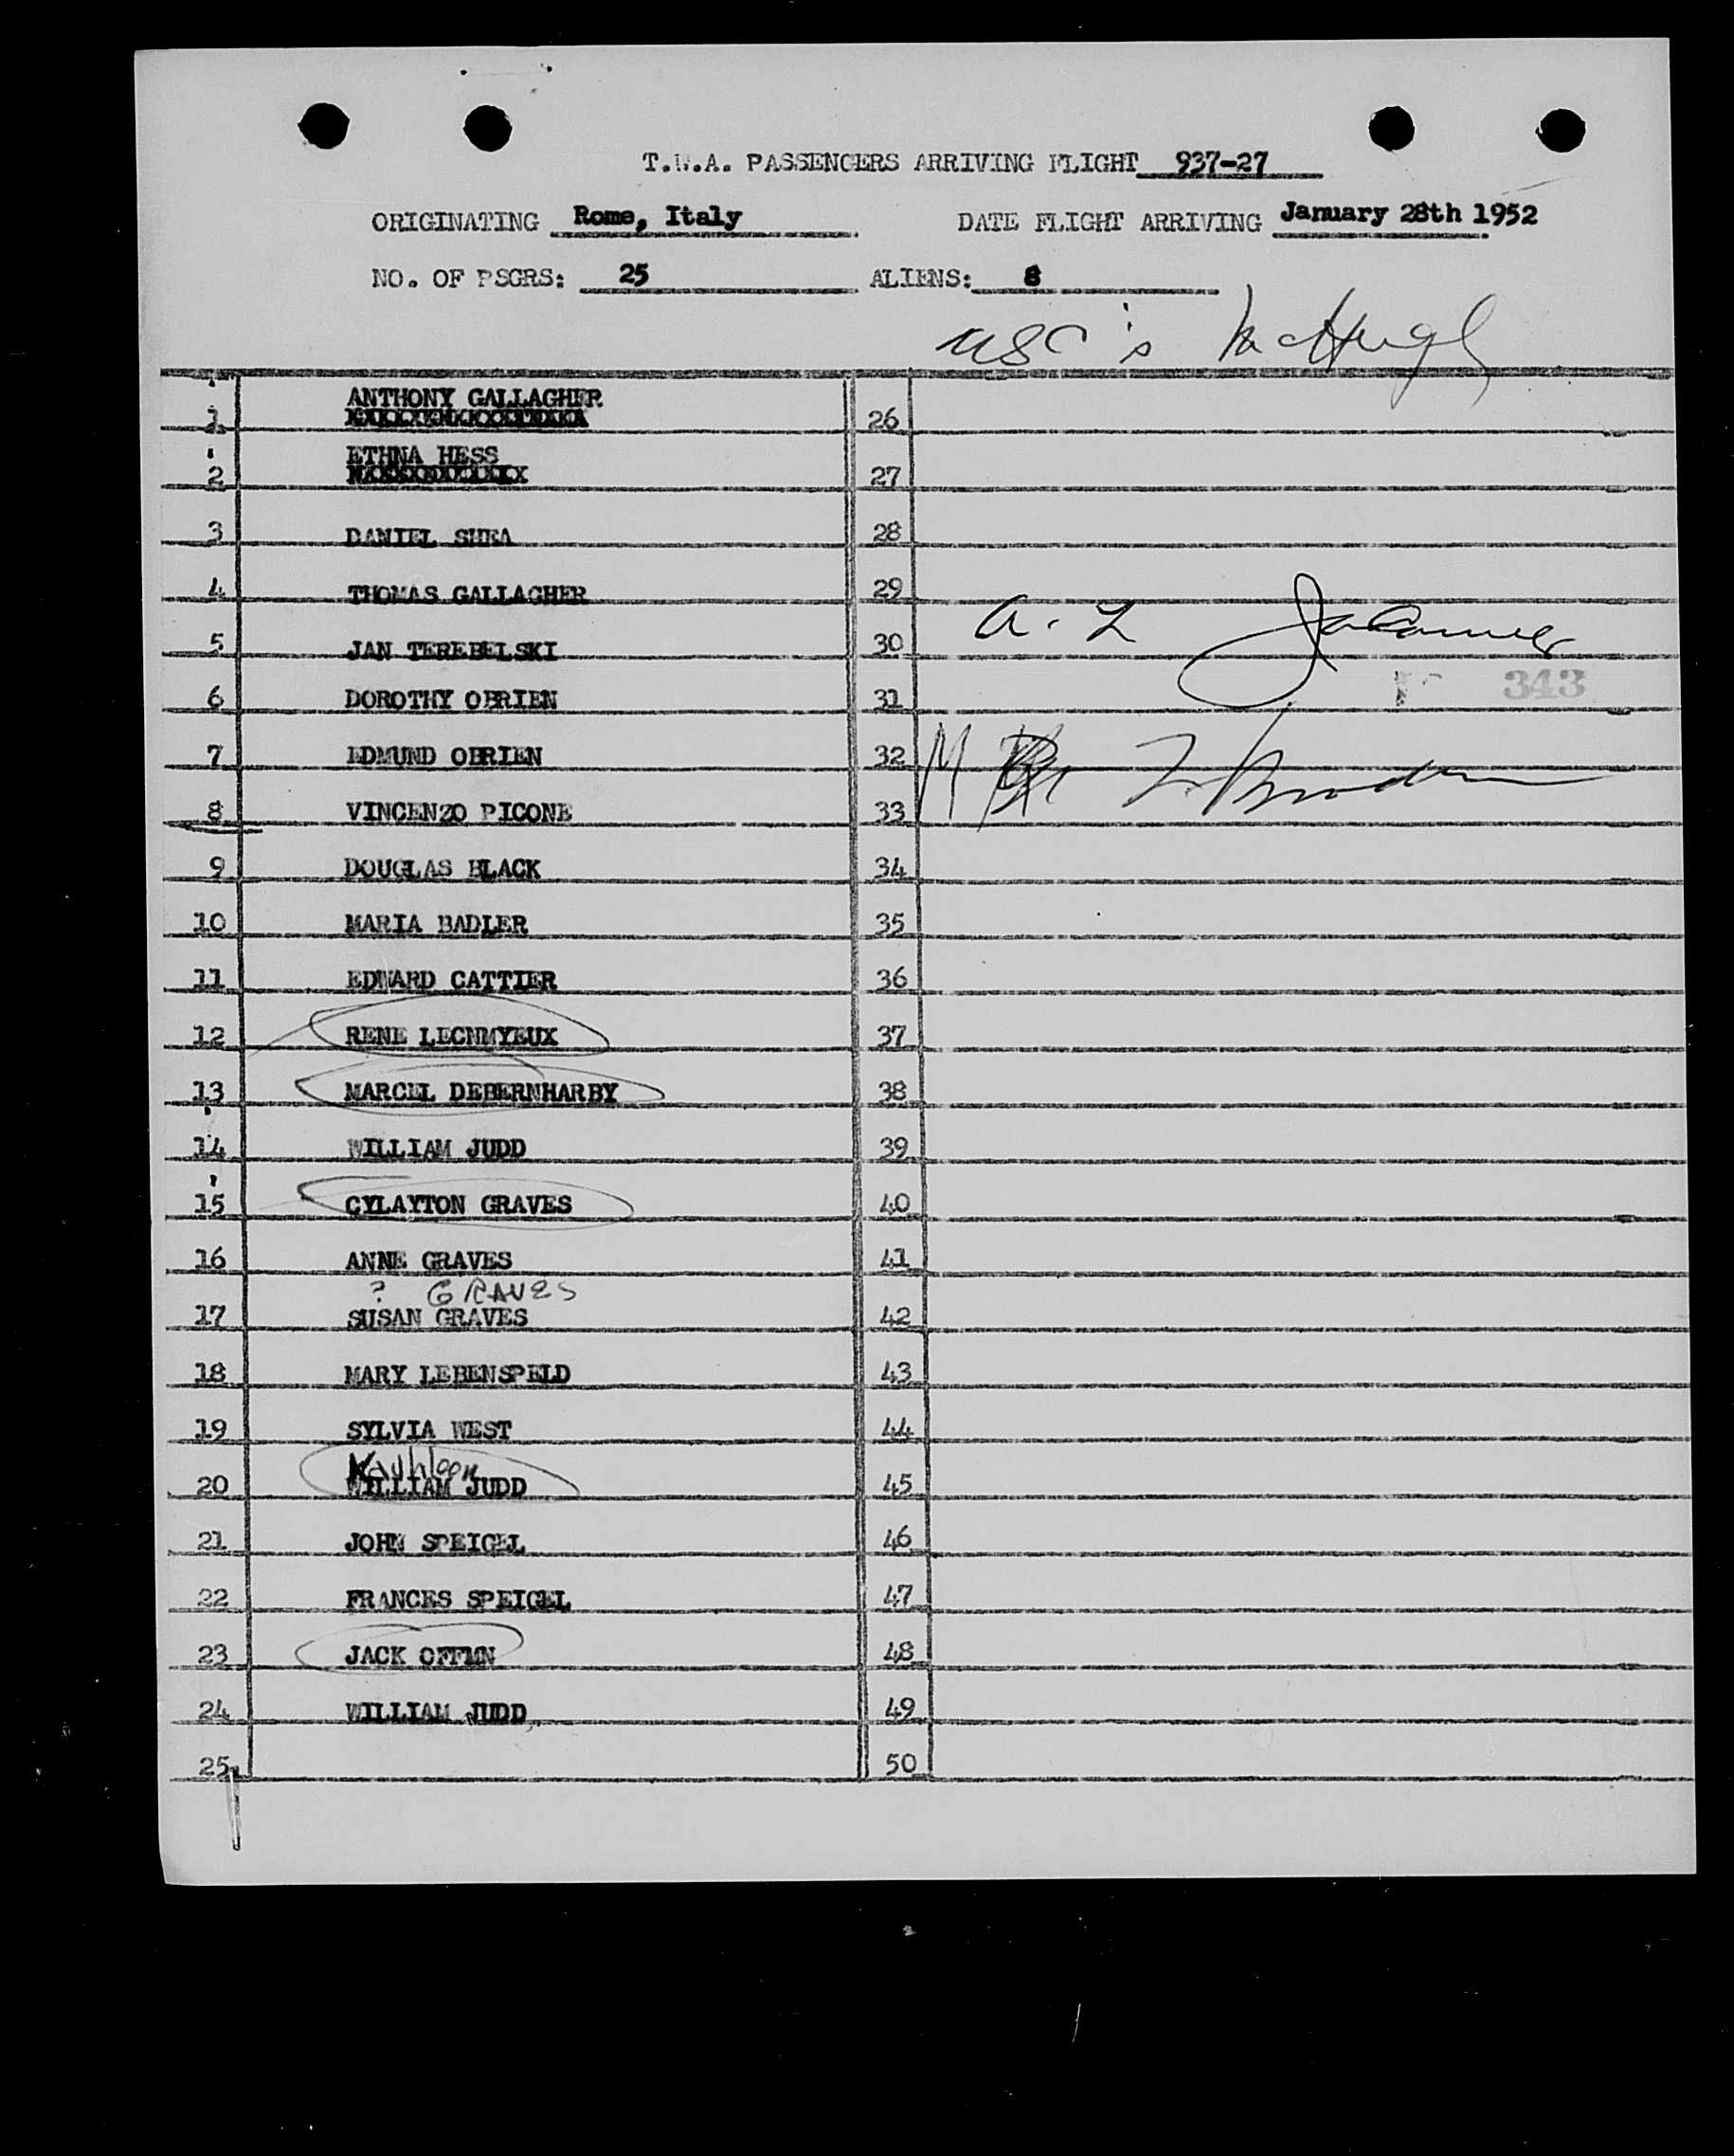 T.W.A. PASSENGERS ARRIVING FLIGHT 937-27
ORIGINATING Rome, Italy DATE FLIGHT ARRIVING January 28th 1952
NO. OF PSGRS: 25 ALIENS: 8
USC's McHugh
1 ANTHONY GALLAGHER 26
2 ETHNA HESS 27
3 DANIEL SHEA 28
4 THOMAS GALLAGHER 29
5 JAN TEREBELSKI 30 A. L
6 DOROTHY OBRIEN 31 343
7 EDMUND OBRIEN 32 M
8 VINCENZO PICONE 33
9 DOUGLAS BLACK 34
10 MARIA BADLER 35
11 EDWARD CATTIER 36
12 RENE LECNMYEUX 37
13 MARCEL DEBERNHARBY 38
14 WILLIAM JUDD 39
15 CYLAYTON GRAVES 40
16 ANNE GRAVES 41
? GRAVES
17 SUSAN GRAVES 42
18 MARY LEBENSPELD 43
19 SYLVIA WEST 44
Kauhleen
20 WILLIAM JUDD 45
21 JOHN SPEIGEL 46
22 FRANCES SPEIGEL 47
23 JACK OFFMN 48
24 WILLIAM JUDD 49
25 50